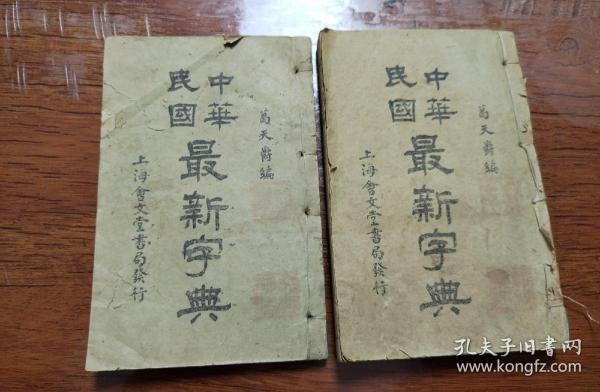 葛天爵編
中華
民國
最新字典
上海會文堂書局發行
葛天爵編
中華
民國
最新字典
上海會文堂書局發行
孔夫子旧书网
www.kongfz.com